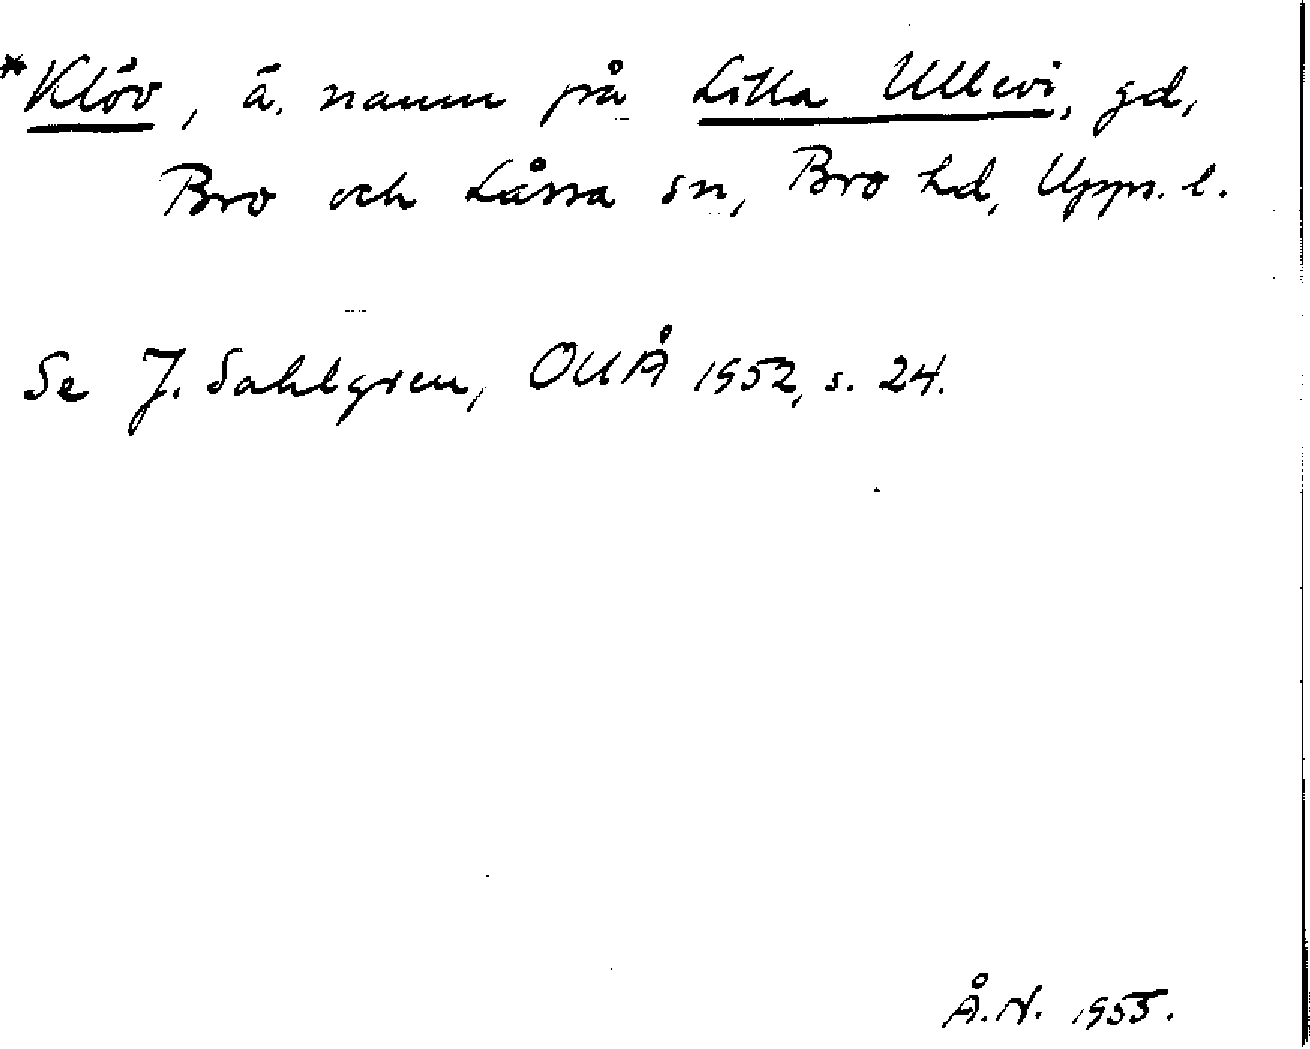 *Klöv, ä. namn på Lilla Ullevi, gd,
Bro och Låssa sn, Bro hd, Upps. l.
Se J. Sahlgren, OUÅ 1952, s. 24.
Å.N. 1955.